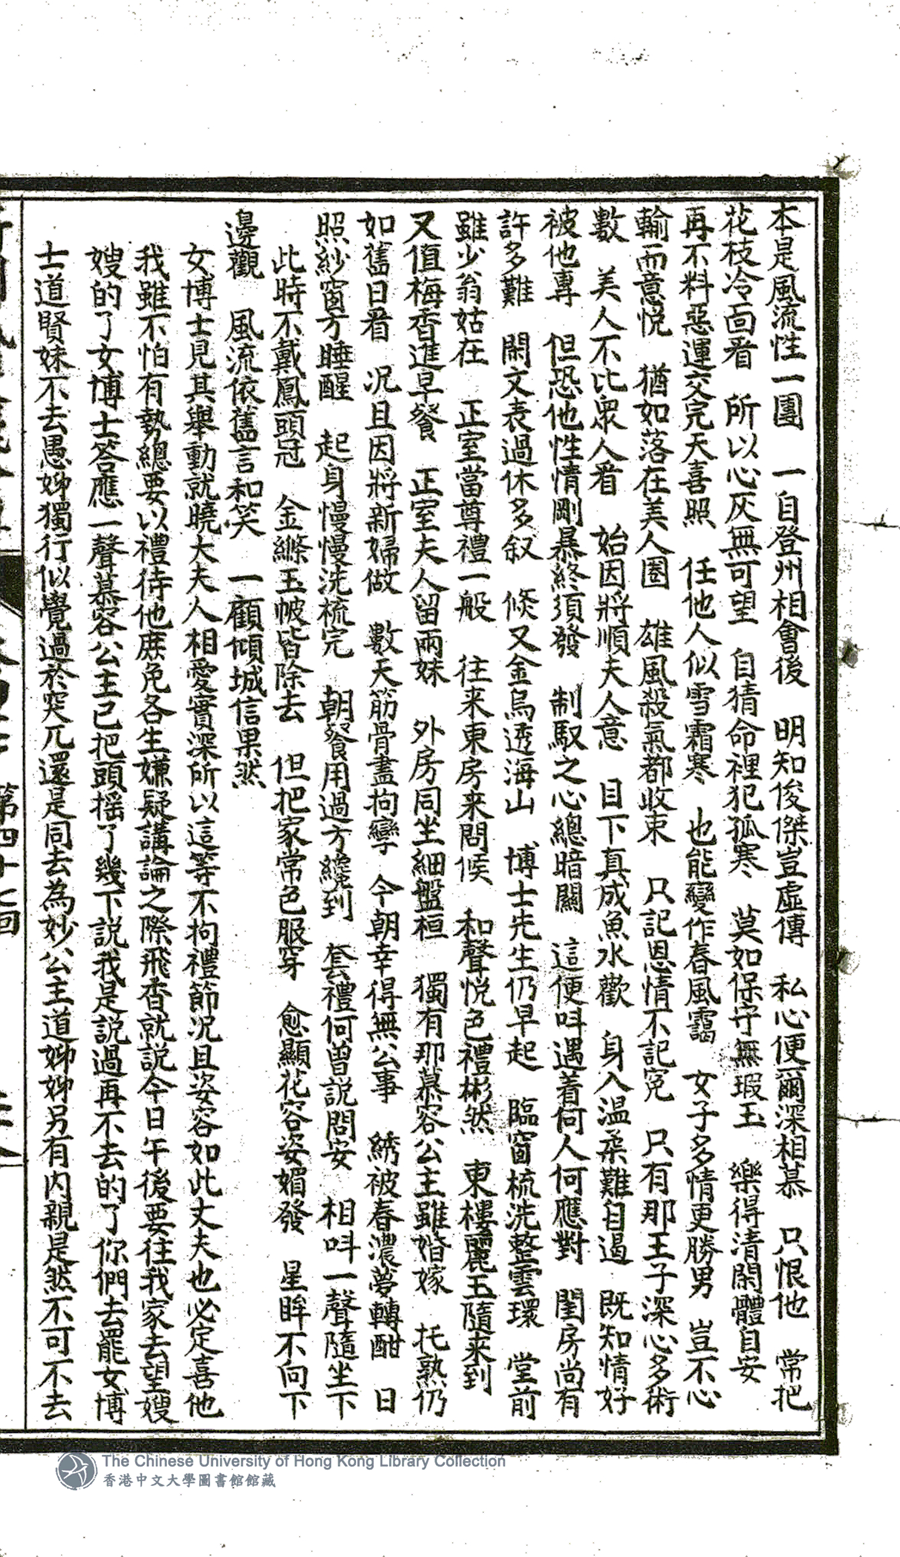 本是風流性一團　一自登州相會後　明知俊傑豈虛傳　私心便爾深相慕　只恨他　常把
花枝冷面看　所以心灰無可望　自猜命裡犯孤寒　莫如保守無瑕玉　樂得清閑體自安
再不料惡運交完天喜照　任他人似雪霜寒　也能變作春風靄　女子多情更勝男　豈不心
輸而意悅　猶如落在美人圈　雄風殺氣都收束　只記恩情不記冤　只有那王子深心多術
數　美人不比眾人看　始因將順夫人意　目下真成魚水歡　身入溫柔難自遏　既知情好
被他專　但恐他性情剛暴終須發　制馭之心總暗關　這便呌遇着何人何應對　閨房尚有
許多難　閑文表過休多叙　倐又金烏透海山　博士先生仍早起　臨窗梳洗整雲環　堂前
雖少翁姑在　正室當尊禮一般　往来東房来問候　和聲悅色禮彬然　東樓麗玉隨来到
又值梅香進早餐　正室夫人留兩妹　外房同坐細盤桓　獨有那慕容公主雖婚嫁　托熟仍
如舊日看　况且因將新婦做　數天筋骨盡拘攣　今朝幸得無公事　綉被春濃夢轉酣　日
照紗窗方睡醒　起身慢慢洗梳完　朝餐用過方纔到　套禮何曾説問安　相呌一聲隨坐下
此時不戴鳳頭冠　金縧玉帔皆除去　但把家常色服穿　愈顯花容姿媚發　星眸不向下
邊觀　風流依舊言和笑　一顧傾城信果然
女博士見其舉動就曉大夫人相愛實深所以這等不拘禮節况且姿容如此丈夫也必定喜他
我雖不怕有勢總要以禮待他庶免各生嫌疑講論之際飛香就説今日午後要往我家去望嫂
嫂的了女博士答應一聲慕容公主已把頭搖了幾下説我是説過再不去的了你們去罷女博
士道賢妹不去愚姊獨行似覺過於突兀還是同去為妙公主道姊姊另有内親是然不可不去
第四十七回
The Chinese University of Hong Kong Library Collection
香港中文大學圖書館館藏